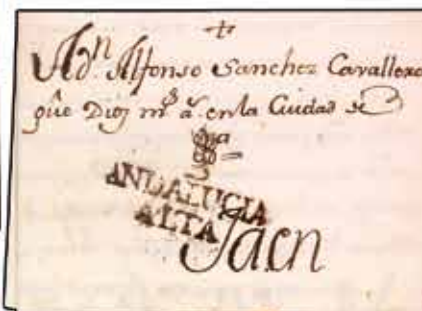 A dn. Alfonso Sanchez Cavallero
gũe Dios ms. as. en la Ciudad de
ANDALUCIA
ALTA
Jaen